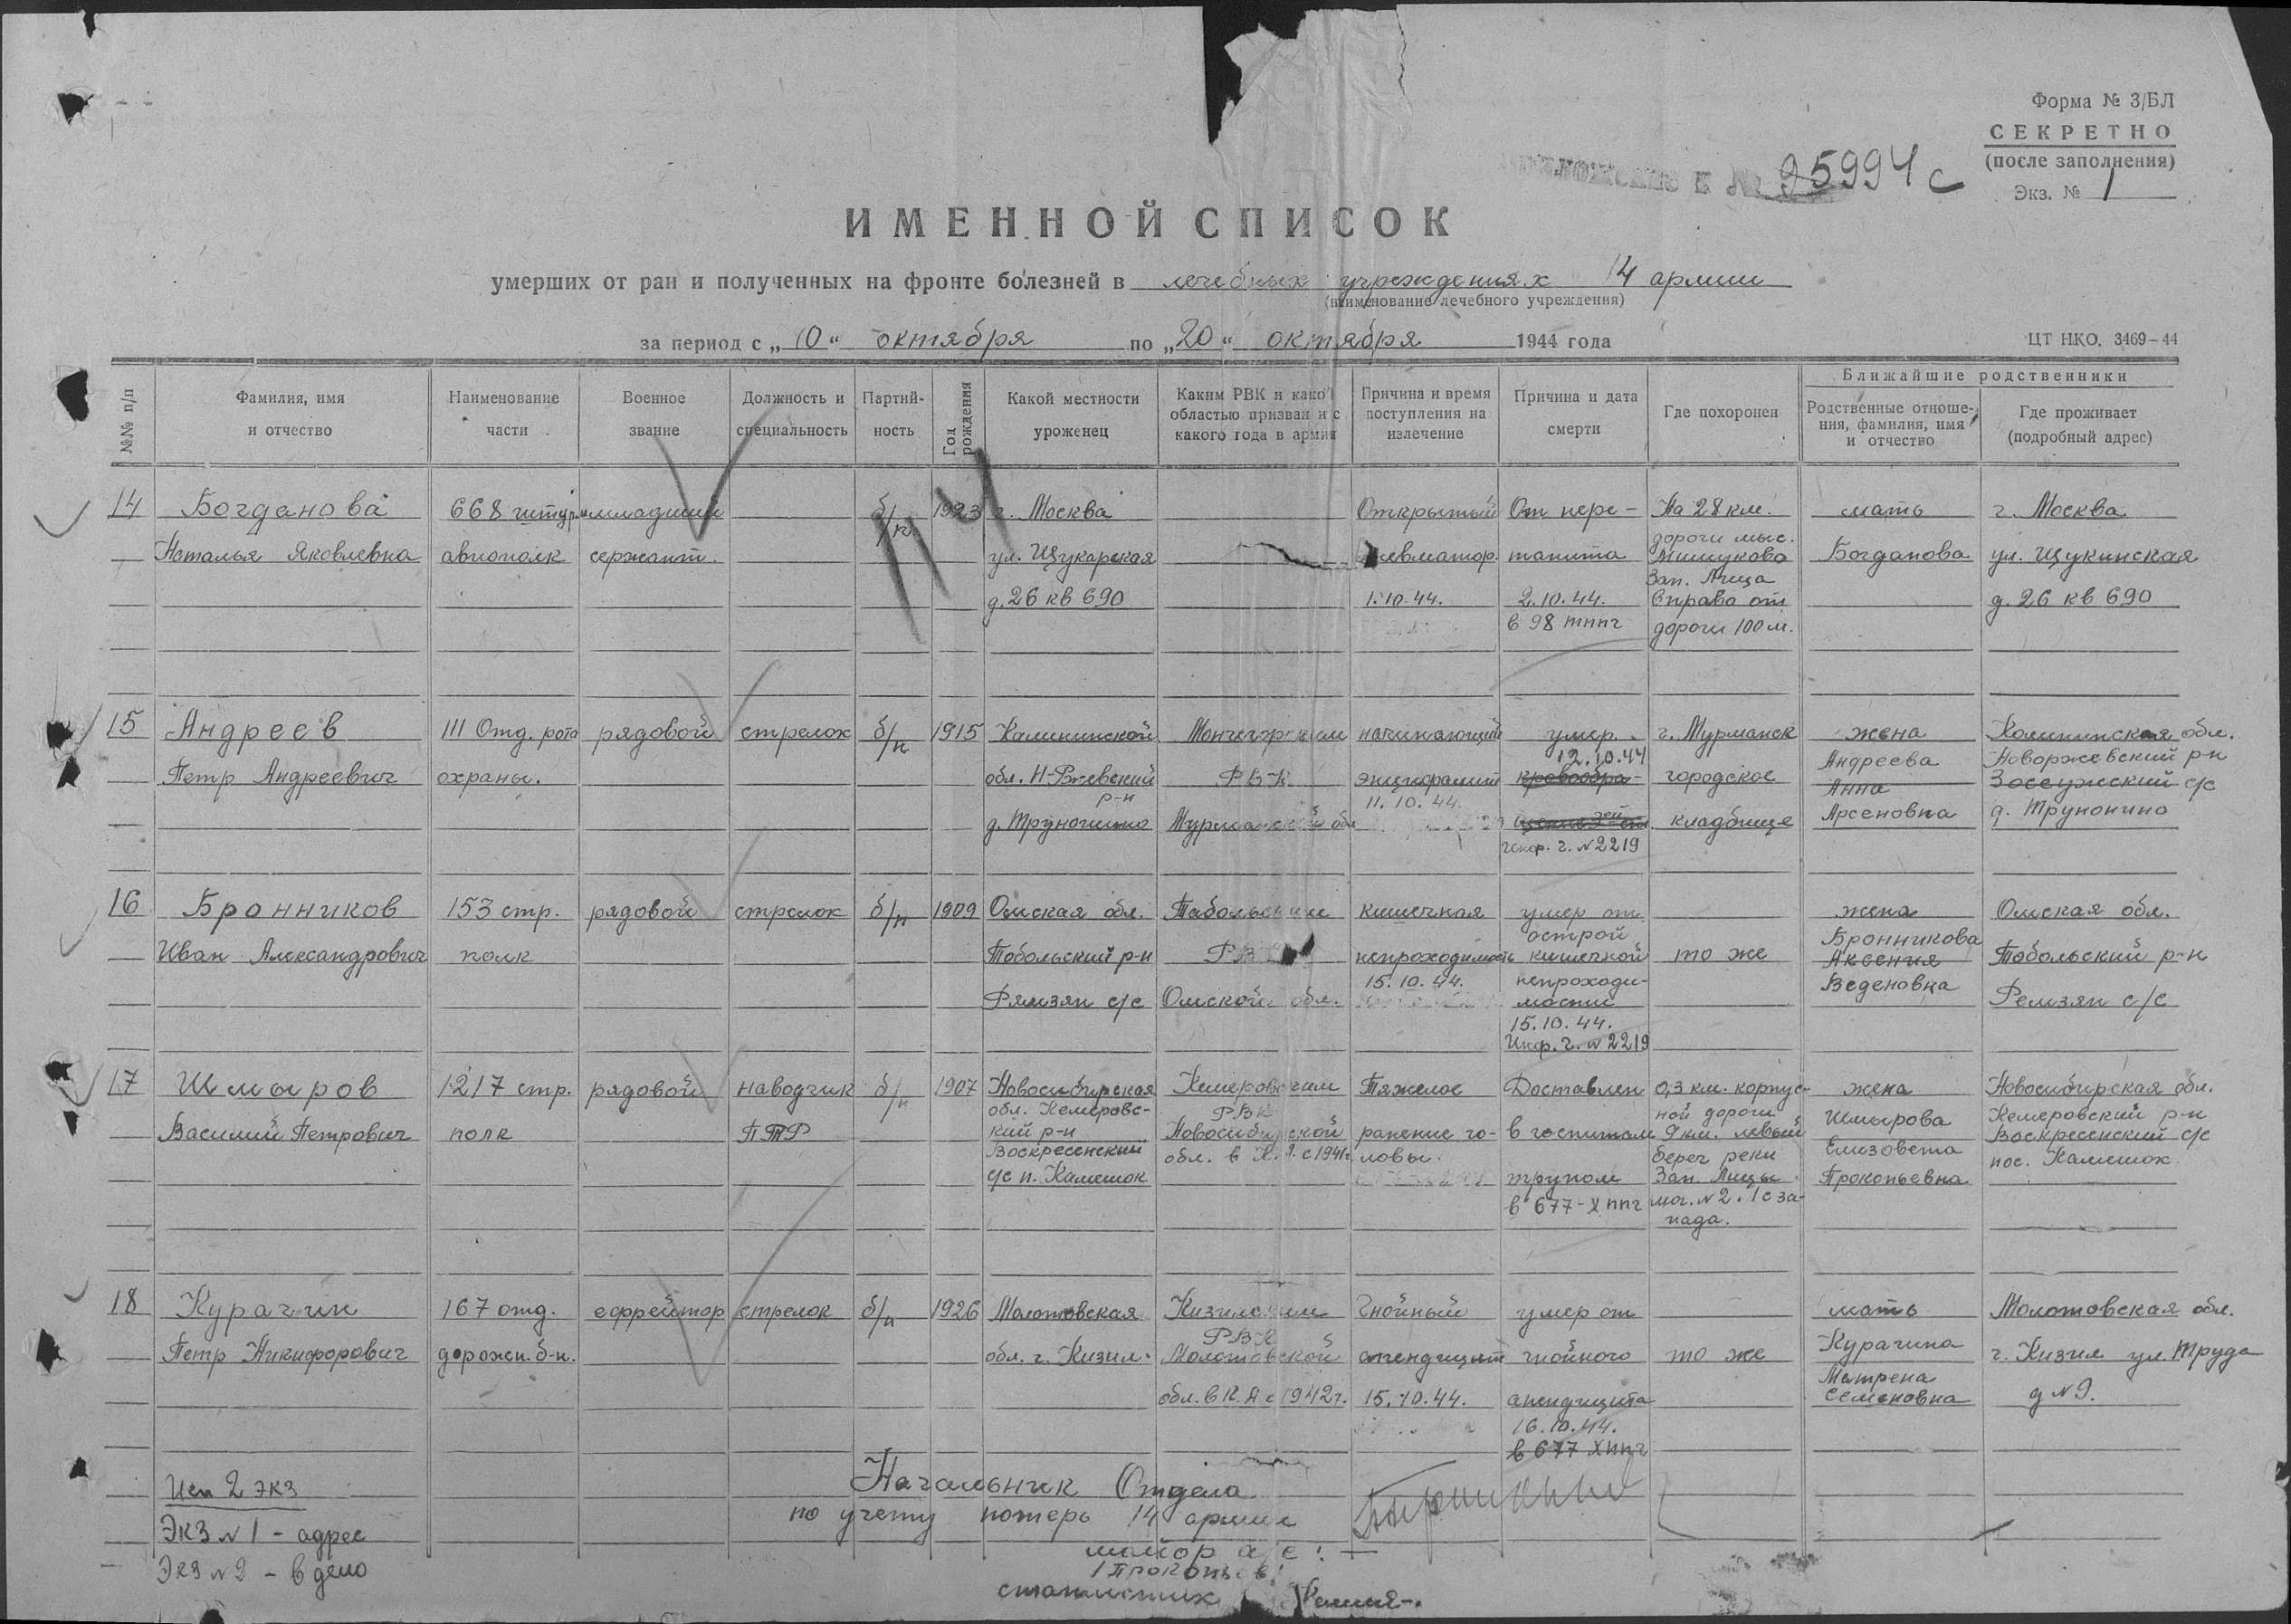 Форма № 3/БЛ
СЕКРЕТНО
(после заполнения)
Экз. № 1
К № 95994 с
ИМЕННОЙ СПИСОК
умерших от ран и полученных на фронте болезней в лечебных учреждениях 14 армии
(наименование лечебного учреждения)
за период с „10“ октября по „20“ октября 1944 года
ЦТ НКО. 3469-44
№№ п/п
Фамилия, имя
и отчество
Наименование
части
Военное
звание
Должность и
специальность
Партий-
ность
Год
рождения
Какой местности
уроженец
Каким РВК и какой
областью призван и с
какого года в армии
Причина и время
поступления на
излечение
Причина и дата
смерти
Где похоронен
Ближайшие родственники
Родственные отноше-
ния, фамилия, имя
и отчество
Где проживает
(подробный адрес)
14
Богданова
Наталья Яковлевна
668 штур.
авиополк
младший
сержант.
б/п
1923
г. Москва
ул. Щукарская
д. 26 кв 690
Открытый
1.10.44.
От пере-
тонита
2.10.44.
в 98 тппг
На 28 км.
дороги мыс.
Мишуково
Зап. Лица
Справа от
дороги 100 м.
мать
Богданова
г. Москва
ул. Щукинская
д. 26 кв 690
15
Андреев
Петр Андреевич
111 Отд. рота
охраны.
рядовой
стрелок
б/п
1915
Калининской
обл. Н-Ржевский
р-н
Мончегорским
РВК
Мурманской обл
начинающий
11.10.44.
умер.
12.10.44
г. № 2219
г. Мурманск
городское
кладбище
жена
Андреева
Анна
Арсеновна
Калининская обл.
Новоржевский р-н
д. Трунонино
16
Бронников
Иван Александрович
153 стр.
полк
рядовой
стрелок
б/п
1909
Омская обл.
Тобольский р-н
Рямзян с/с
Тобольским
РВ
Омской обл.
кишечная
непроходимость
15.10.44.
умер от
острой
кишечной
непроходи-
мости
15.10.44.
Инф. г. № 2219
то же
жена
Бронникова
Аксения
Веденовна
Омская обл.
Тобольский р-н
Ремзян с/с
17
Шмыров
Василий Петрович
1217 стр.
полк
рядовой
наводчик
ПТР
б/п
1907
Новосибирская
обл. Кемеровс-
кий р-н
Воскресенский
с/с п. Камешок
Кемеровским
РВК
Новосибирской
обл. в К.А. с 1941г.
Тяжелое
ранение го-
ловы.
Доставлен
в госпиталь
трупом
в 677-Хппг
0,3 км. корпус-
ной дороги
9 км. левый
берег реки
Зап. Лицы
мог. № 2. 1 с за-
пада.
жена
Шмырова
Елизовета
Прокопьевна
Новосибирская обл.
Кемеровский р-н
Воскресенский с/с
пос. Камешок
18
Курагин
Петр Никифорович
167 отд.
дорожн. б-н.
ефрейтор
стрелок
б/п
1926
Молотовская
обл. г. Кизил.
Кизилским
РВК
Молотовской
обл. в К.А с 1942г.
Гнойный
апендицит
15.10.44.
умер от
гнойного
апендицита
16.10.44.
в 677 Хппг
то же
мать
Курагина
Матрена
Семеновна
Молотовская обл.
г. Кизил ул. Труда
д № 9.
Исп 2 экз
Экз № 1 - адрес
Экз № 2 - в дело
Начальник Отдела
по учету потерь 14 армии
майор а/с:
/Прокопьев/
статистик